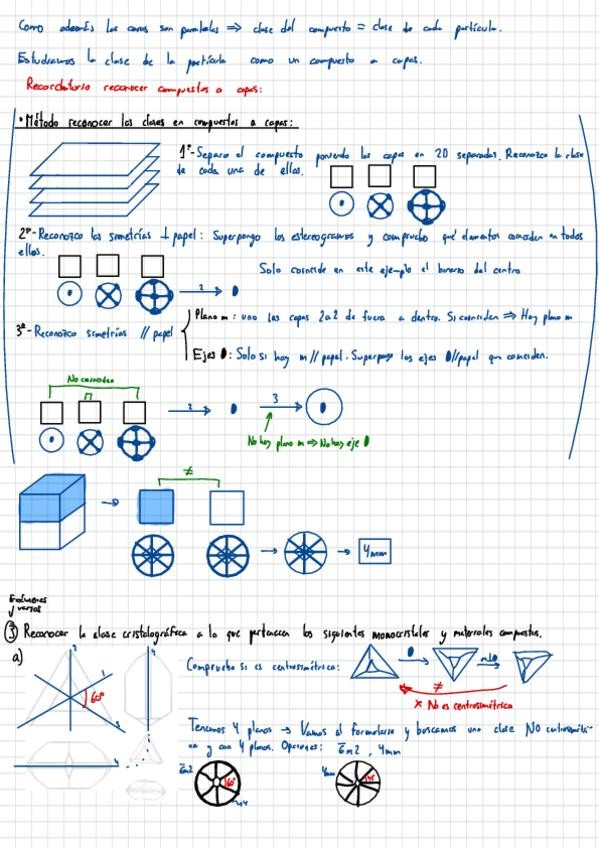 Como además las caras son paralelas ⇒ clase del compuesto = clase de cada partícula.
Estudiamos la clase de la partícula como un compuesto a capas.
Recordatorio reconocer compuestos a capas:
• Método reconocer las clases en compuestos a capas:
1º- Separo el compuesto poniendo las capas en 2D separadas. Reconozco la clase
de cada una de ellas.
2º- Reconozco las simetrías ⊥ papel: Superpongo los estereogramas y compruebo qué elementos coinciden en todos
ellos.
2
Solo coincide en este ejemplo el binario del centro
3º- Reconozco simetrías // papel
Plano m: uno las capas 2 a 2 de fuera a dentro. Si coinciden ⇒ Hay plano m
Ejes: Solo si hay m // papel. Superpongo los ejes // papel que coinciden.
No coinciden
2
3
No hay plano m ⇒ No hay eje
≠
4mm
3 Reconocer la clase cristalográfica a la que pertenecen los siguientes monocristales y materiales compuestos.
a)
2
1
60°
3
4
Compruebo si es centrosimétrica:
≠
× No es centrosimétrica
Tenemos 4 planos → Vamos al formulario y buscamos una clase NO centrosimétri-
ca y con 4 planos. Opciones: 6̅m2, 4mm
6̅m2
60°
4mm